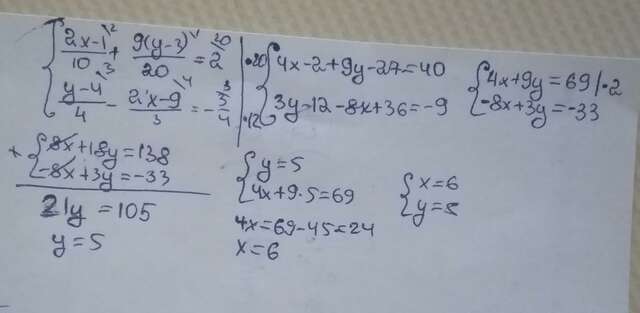 { (2x-1)/10 + 9(y-3)/20 = 2 | ·20
{ (y-4)/4 - (2x-9)/3 = -3/4 | ·12
{ 4x-2+9y-27=40
{ 3y-12-8x+36=-9
{ 4x+9y=69 | ·2
{ -8x+3y=-33
+ { 8x+18y=138
{ -8x+3y=-33
21y=105
y=5
{ y=5
{ 4x+9·5=69
4x=69-45=24
x=6
{ x=6
{ y=5